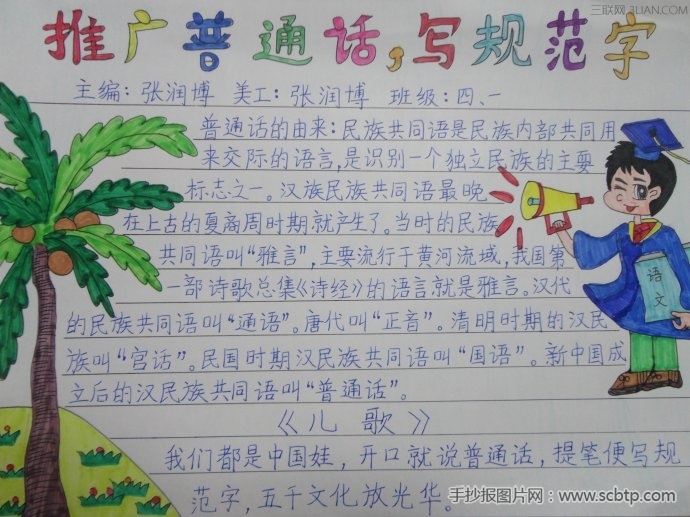 三联网 3LIAN.COM
推广普通话,写规范字
主编:张润博 美工:张润博 班级:四、一
普通话的由来:民族共同语是民族内部共同用
来交际的语言,是识别一个独立民族的主要
标志之一。汉族民族共同语最晚
在上古的夏商周时期就产生了。当时的民族
共同语叫“雅言”,主要流行于黄河流域,我国第
一部诗歌总集《诗经》的语言就是雅言。汉代
的民族共同语叫“通语”。唐代叫“正音”。清明时期的汉民
族叫“官话”。民国时期汉民族共同语叫“国语”。新中国成
立后的汉民族共同语叫“普通话”。
语文
《儿歌》
我们都是中国娃,开口就说普通话,提笔便写规
范字,五千文化放光华。
手抄报图片网:www.scbtp.com